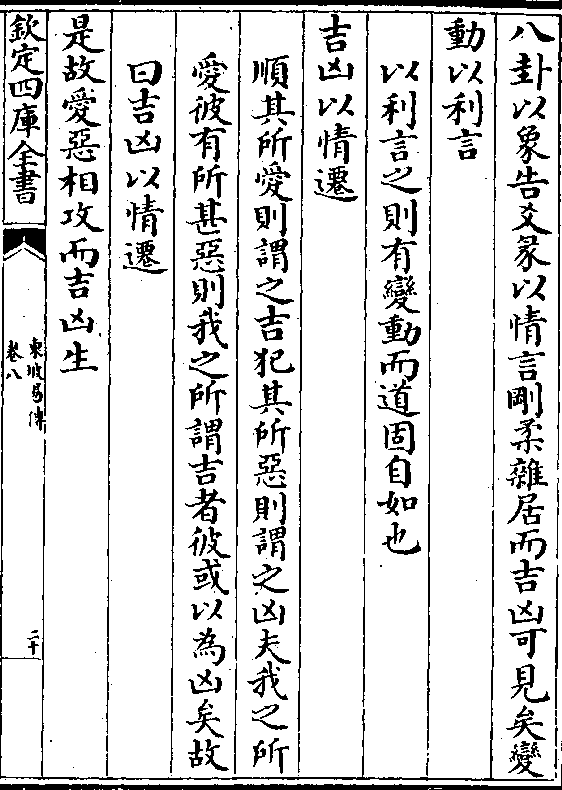 八卦以象告爻彖以情言剛柔雜居而吉凶可見矣變
動以利言
以利言之則有變動而道固自如也
吉凶以情遷
順其所愛則謂之吉犯其所惡則謂之凶夫我之所
愛彼有所甚惡則我之所謂吉者彼或以為凶矣故
曰吉凶以情遷
是故愛惡相攻而吉凶生
欽定四庫全書
東坡易傳
卷八
二十